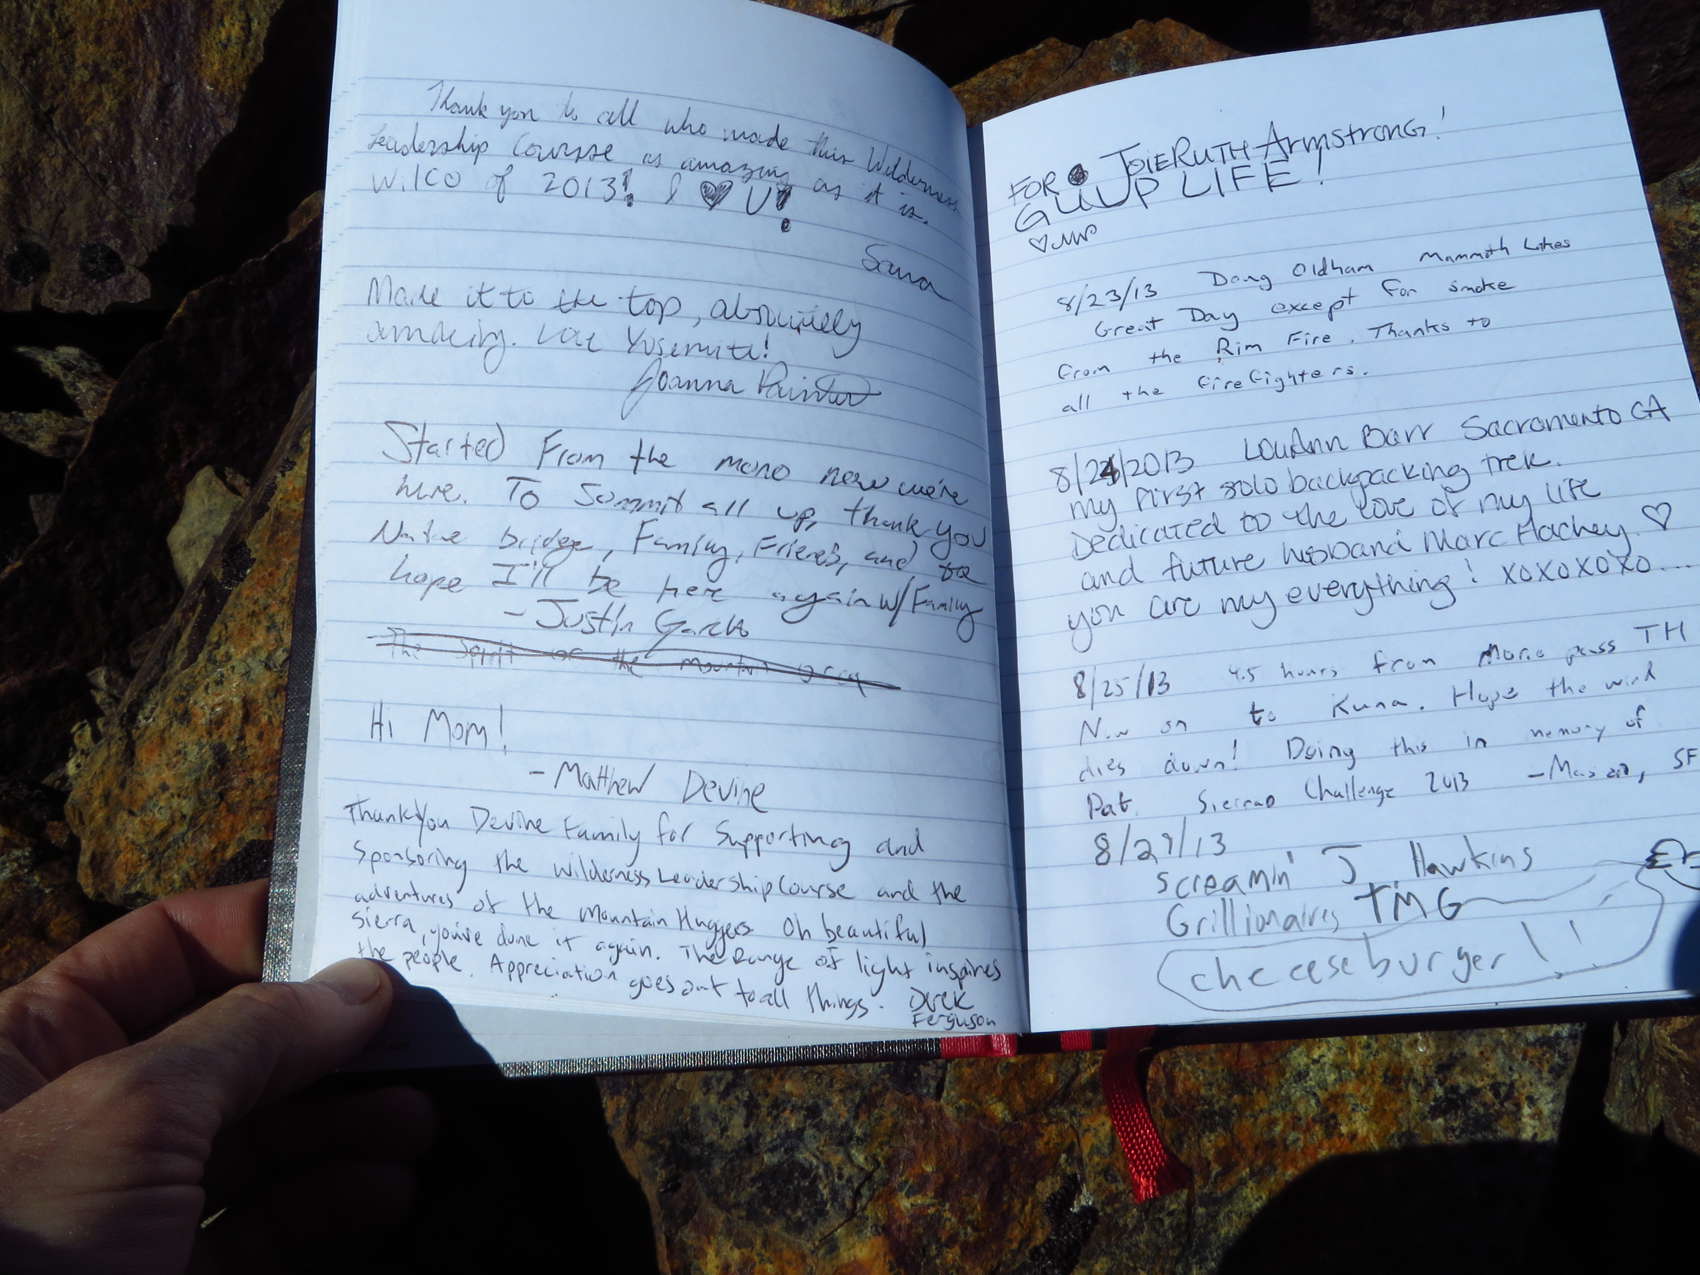 Thank you to all who made this Wilderness
Leadership Course as amazing as it is.
WILCO of 2013! I ♥ U!
Sana
Made it to the top, absolutely
amazing. Love Yosemite!
Joanna
Started From the mono now we're
here. To Summit all up, thank you
Native bridge, Family, Friends, and
hope I'll be here again w/ Family
- Justin
The Spirit of the Mountain
Hi Mom!
- Matthew Devine
Thank You Devine Family for Supporting and
Sponsoring the Wilderness Leadership Course and the
adventures of the Mountain Huggers Oh beautiful
Sierra, you've done it again. The Range of light inspires
the people. Appreciation goes out to all things. Derek
Ferguson
FOR JOIERUTH ARMSTRONG!
GUUP LIFE!
♡
8/23/13 Doug Oldham Mammoth Lakes
Great Day except for smoke
from the Rim Fire. Thanks to
all the firefighters.
8/24/2013 LouAnn Barr Sacramento CA
my first solo backpacking trek.
Dedicated to the love of my life
and future husband Marc Hachey. ♡
you are my everything! XOXOXOXO....
8/25/13 4.5 hours from Mono pass TH
Now on to Kuna. Hope the wind
dies down! Doing this in memory of
Pat. Sierra Challenge 2013 SF
8/29/13
Screamin' J. Hawkins
Grillionaires TMG
cheeseburger!!